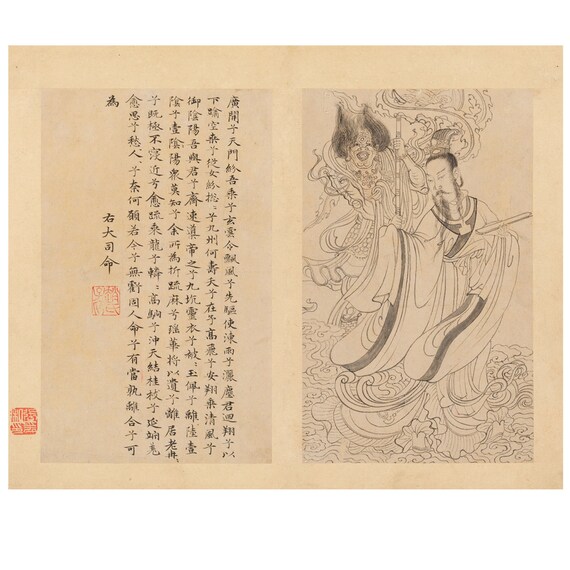 廣開兮天門紛吾乘兮玄雲令飄風兮先驅使涷雨兮灑塵君迴翔兮以
下踰空桒兮從女紛緫〻兮九州何壽夭兮在予高飛兮安翔乘清風兮
御陰陽吾與君兮齋速導帝之兮九坑靈衣兮被〻玉佩兮離陸壹
陰兮壹陰陽衆莫知兮余所為折疏麻兮瑶華將以遺兮離居老冉
兮既極不寖近兮愈疏乘龍兮轔〻高駝兮沖天結桂枝兮延竚羌
愈思兮愁人兮奈何願若今兮無虧固人命兮有當孰離合兮可
為
右大司命